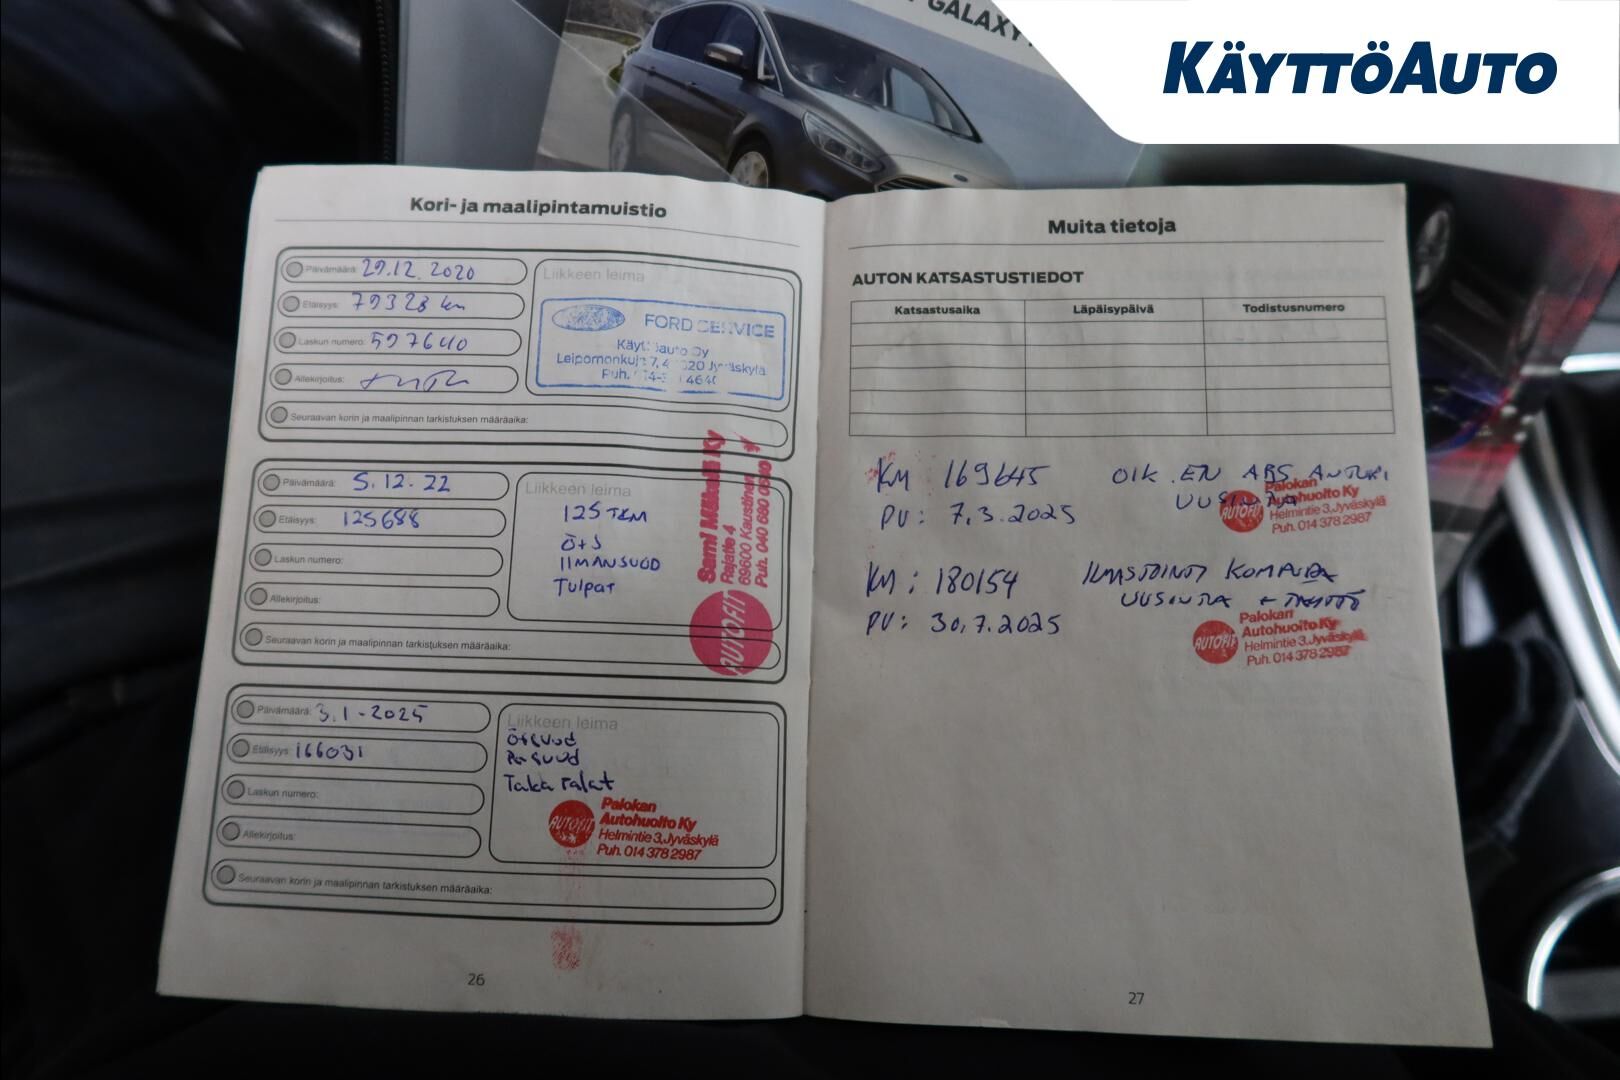 GALAXY
KÄYTTÖAUTO
Kori- ja maalipintamuistio
Päivämäärä: 29.12.2020
Etäisyys: 79328 km
Laskun numero: 597640
Allekirjoitus:
Seuraavan korin ja maalipinnan tarkistuksen määräaika:
Liikkeen leima
FORD SERVICE
Oy
Leipomonkuja 7, Jyväskylä
Puh.
Päivämäärä: 5.12.22
Etäisyys: 125688
Laskun numero:
Allekirjoitus:
Seuraavan korin ja maalipinnan tarkistuksen määräaika:
Liikkeen leima
125 TKM
Ö+S
IIMANSUOD
Tulpat
AUTOFIT
Sami Ky
Rajatie 4
69600 Kaustinen
Puh. 040 680
Päivämäärä: 3.1-2025
Etäisyys: 166031
Laskun numero:
Allekirjoitus:
Seuraavan korin ja maalipinnan tarkistuksen määräaika:
Liikkeen leima
Taka
AUTOFIT
Palokan
Autohuolto Ky
Helmintie 3, Jyväskylä
Puh. 014 378 2987
26
Muita tietoja
AUTON KATSASTUSTIEDOT
Katsastusaika Läpäisypäivä Todistusnumero
KM 169645 OIK. EN ABS ANTURI
PV: 7.3.2025 UUSINTA
AUTOFIT
Palokan
Autohuolto Ky
Helmintie 3, Jyväskylä
Puh. 014 378 2987
KM: 180154 ILMASTOINTI
PV: 30.7.2025 UUSINTA + TÄYTTÖ
AUTOFIT
Palokan
Autohuolto Ky
Helmintie 3, Jyväskylä
Puh. 014 378 2987
27